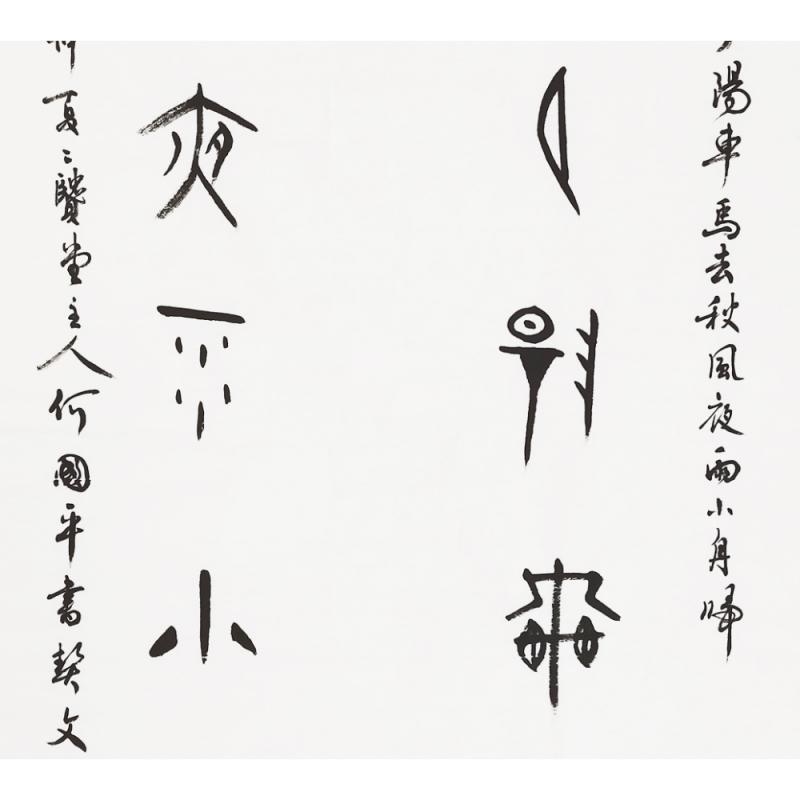 陽車馬去秋風夜雨小舟歸
夕陽車
夜雨小
夏二賢堂主人何國平書契文